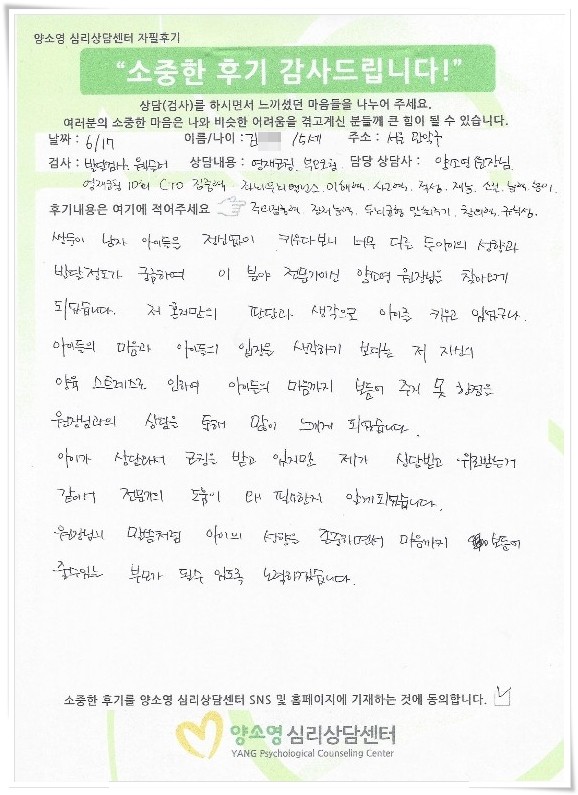 양소영 심리상담센터 자필후기
“소중한 후기 감사드립니다!”
상담(검사)를 하시면서 느끼셨던 마음들을 나누어 주세요.
여러분의 소중한 마음은 나와 비슷한 어려움을 겪고계신 분들께 큰 힘이 될 수 있습니다.
날짜 : 6/17 이름/나이 : 김 /5세 주소 : 서울 관악구
검사 : 발달검사, 상담내용 : 영재코칭, 부모코칭 담당 상담사 : 양소영 원장님
영재코칭 10회 CTO 집중력, 이해력, 사고력,
후기내용은 여기에 적어주세요
쌍둥이 남자 아이들을 정신없이 키우다보니 너무 다른 두아이의 성향과
발달정도가 궁금하여 이 분야 전문가이신 양소영 원장님을 찾아오게
되었습니다. 저 혼자만의 판단과 생각으로 아이를 키우고 있었구나.
아이들의 마음과 아이들의 입장을 생각하기 보다는 저 자신의
양육 스트레스로 인하여 아이들의 마음까지 보듬어 주지 못 했던것을
원장님과의 상담을 통해 많이 느끼게 되었습니다.
아이가 상담와서 코칭을 받고 있지만 제가 상담받고 위로받는거
같아서 전문가의 도움이 왜 필요한지 알게되었습니다.
원장님의 말씀처럼 아이의 성향을 존중하면서 마음까지 보듬어
줄수있는 부모가 될수 있도록 노력하겠습니다.
소중한 후기를 양소영 심리상담센터 SNS 및 홈페이지에 기재하는 것에 동의합니다.
양소영 심리상담센터
YANG Psychological Counseling Center